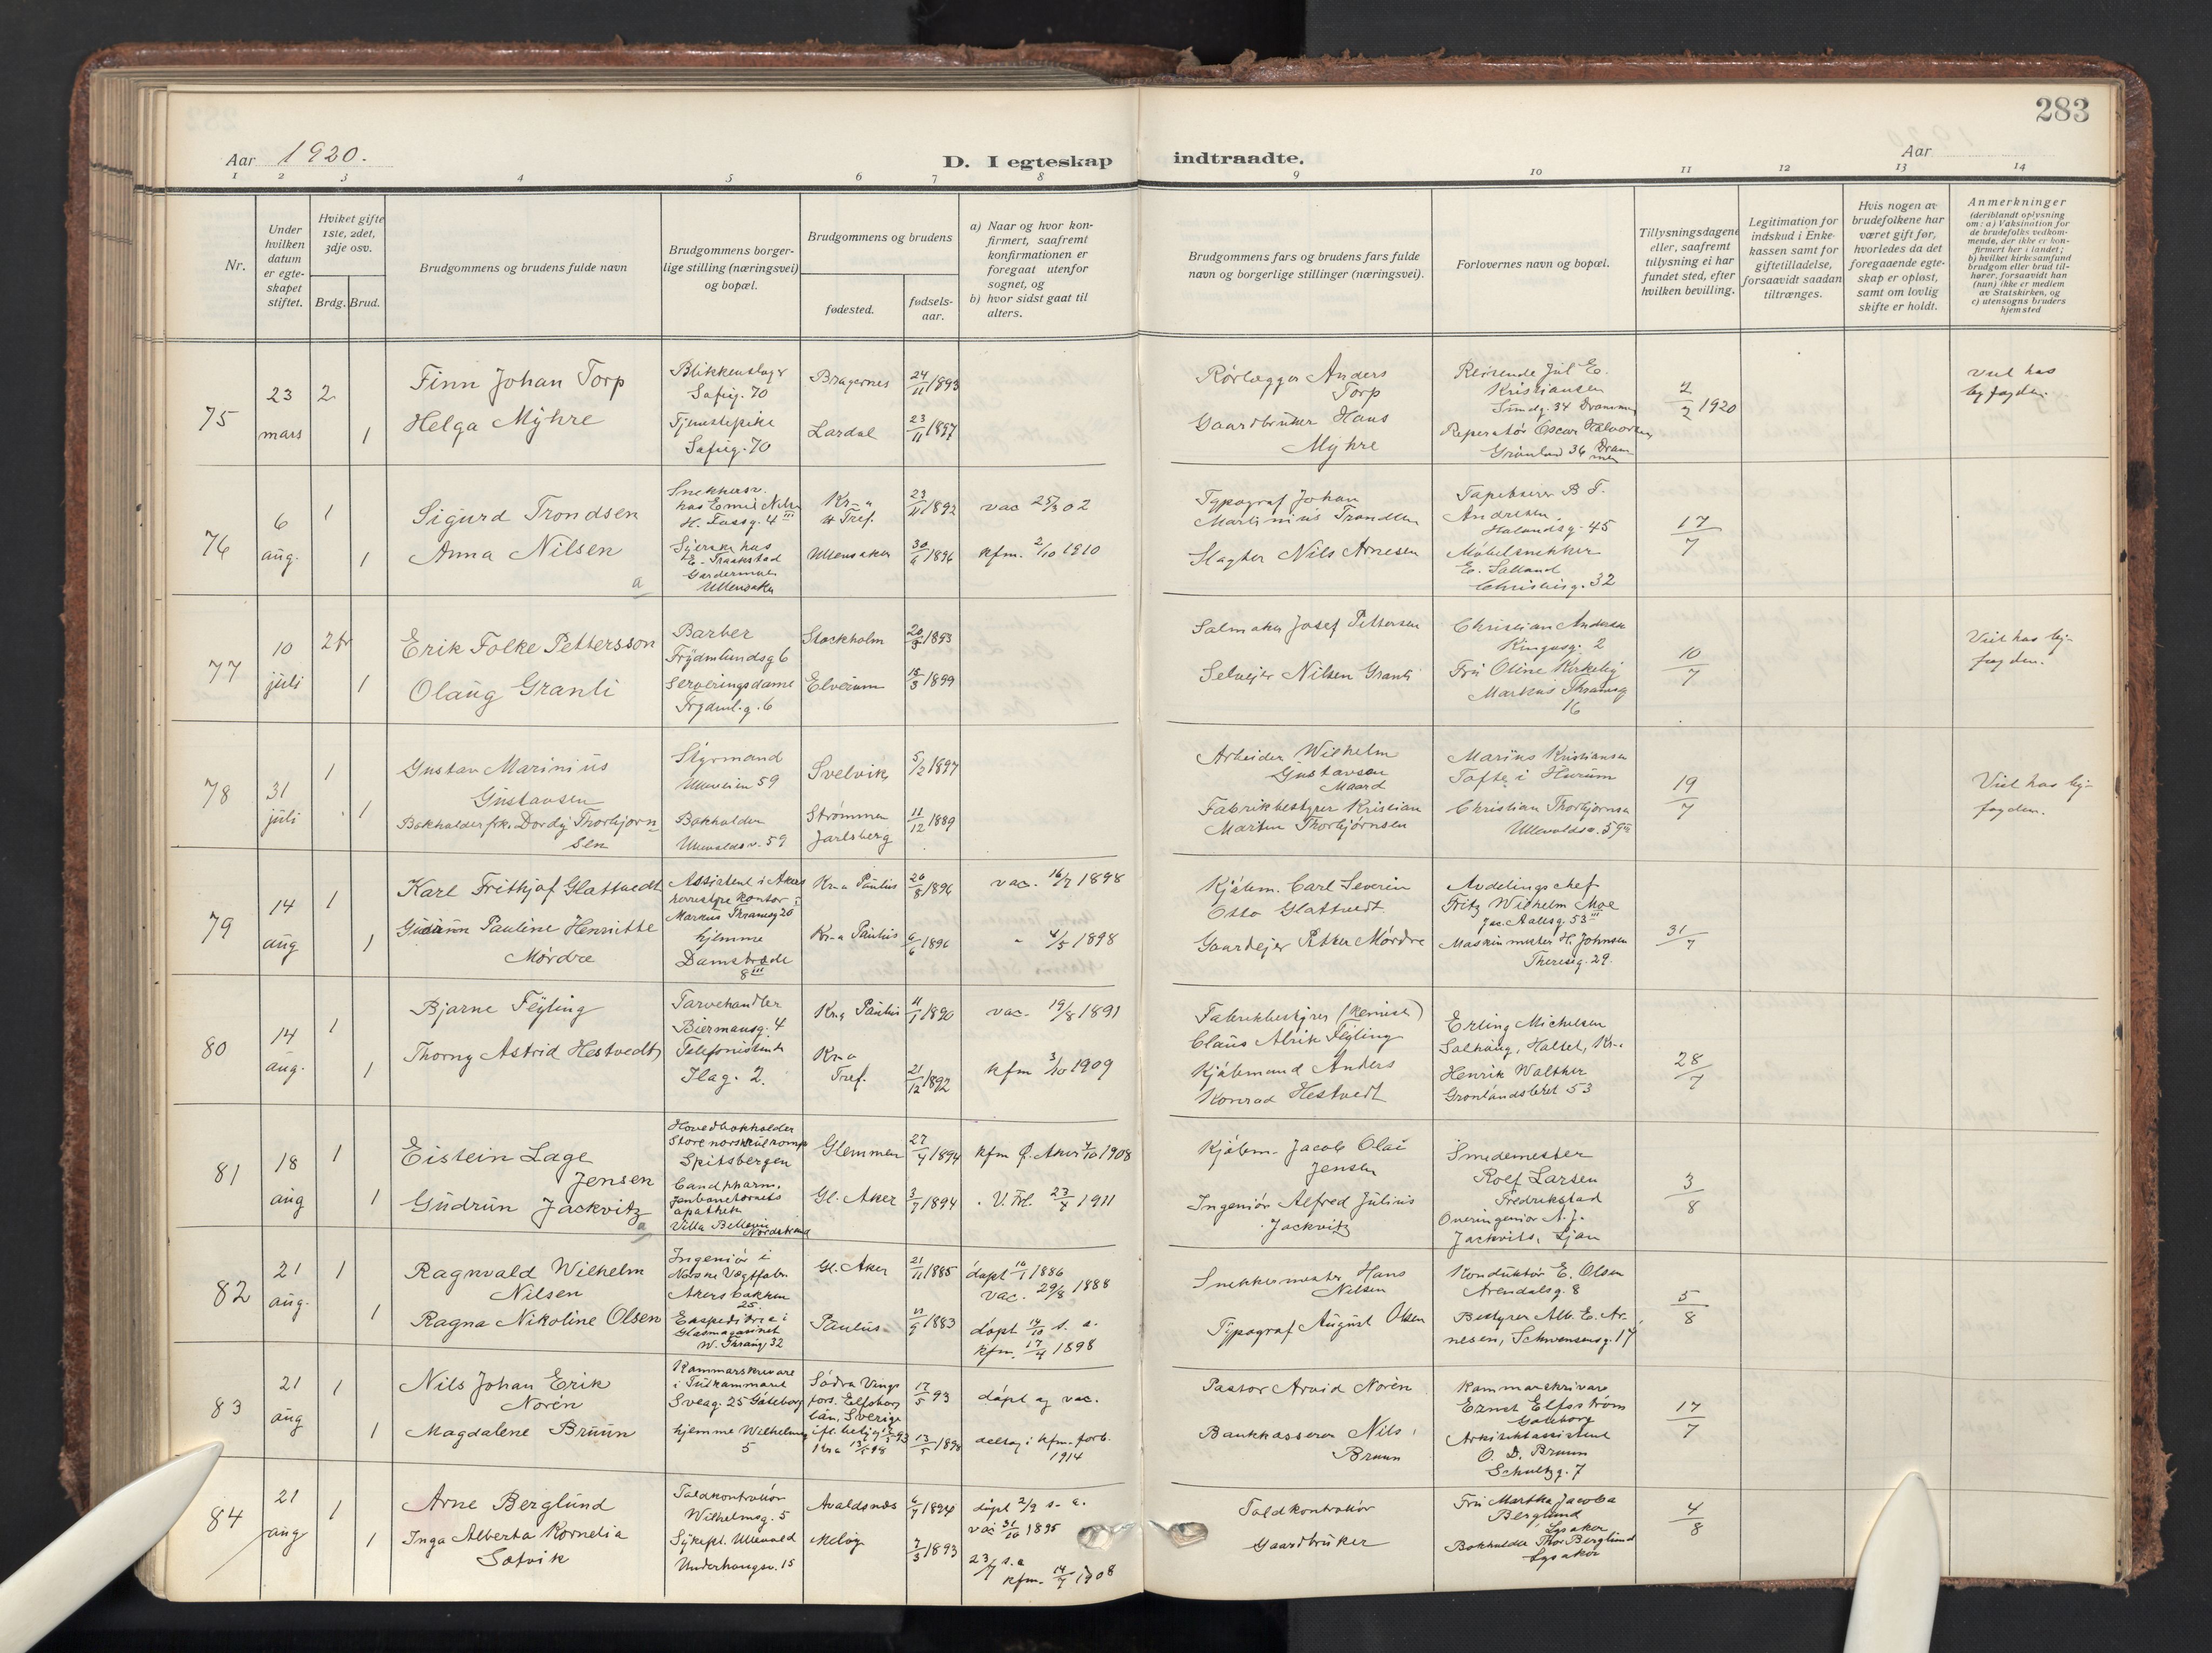 283
Aar 1920.
D. I egteskap indtraadte.
Aar
1 2 3 4 5 6 7 8 9 10 11 12 13 14
Nr.
Under hvilken datum er egteskapet stiftet.
Hviket gifte 1ste, 2det, 3dje osv.
Brdg. Brud.
Brudgommens og brudens fulde navn
Brudgommens borgerlige stilling (næringsvei) og bopæl.
Brudgommens og brudens
fødested.
fødsels-aar.
a) Naar og hvor konfirmert, saafremt konfirmationen er foregaat utenfor sognet, og
b) hvor sidst gaat til alters.
Brudgommens fars og brudens fars fulde navn og borgerlige stillinger (næringsvei).
Forlovernes navn og bopæl.
Tillysningsdagene eller, saafremt tillysning ei har fundet sted, efter hvilken bevilling.
Legitimation for indskud i Enkekassen samt for giftetilladelse, forsaavidt saadan tiltrænges.
Hvis nogen av brudefolkene har været gift før, hvorledes da det foregaaende egteskap er opløst, samt om lovlig skifte er holdt.
Anmerkninger
(deriblandt oplysning om: a) Vaksination for de brudefolks vedkommende, der ikke er konfirmert her i landet; b) hvilket kirkesamfund brudgom eller brud tilhører, forsaavidt han (hun) ikke er medlem av Statskirken, og c) utensogns bruders hjemsted
75
23 mars
2
1
Finn Johan Torp
Helga Myhre
Safig. 70
Tjenestepike
Safig. 70
Bragernes
Lardal
24/11 1893
23/11 1897
Rørlægger Anders Torp
Gaardbruker Hans Myhre
Reisende Jul E. Kristiansen
Smidg. 34 Drammen
Reperatør Oscar Halvorsen
Grønland 36 Drammen
2/2 1920
Viet hos byfogden.
76
6 aug.
1
1
Sigurd Trondsen
Anna Nilsen
a
Snekkersv. hos Emil Nilsen
H. Tassg. 4 III
Syerske hos
Gardermoen
Ullensaker
Kr-a
Tref.
Ullensaker
23/11 1892
30/9 1896
vac 25/3 02
kfm. 2/10 1910
Typograf Johan Martinius Trondsen
Slagter Nils Arnesen
Tapetserer B T. Andresen
45
Møbelsnekker
E. Salland
Christiesg. 32
17/7
77
10 juli
2fr
1
Erik Folke Pettersson
Olaug Granli
Barber
Frydenlundsg 6
Serveringsdame
Frydenl.g. 6
Stockholm
Elverum
20/5 1893
15/3 1899
Salmaker Josef Pettersen
Selveier Nilsen Granli
Christian Andersen
Ringusg. 2
Fru Oline Kirkeby
Markus Thranesg 16
10/7
Viet hos byfogden.
78
31 juli
1
1
Gustav Marinius
Gustavsen
Bokholderfrk. Dordy Thorbjørnsen
Styrmand
Ullevveien 59
Bokholder
Ullevoldsv. 59
Svelvik
Strømmen
Jarlsberg
5/2 1897
11/12 1889
Arbeider Wilhelm Gustavsen
Maard
Fabrikbestyrer Kristian Martin Thorbjørnsen
Marius Kristiansen
Tofte i Hurum
Christian Thorbjørnsen
Ullevoldsv. 59 II
19/7
Viet hos byfogden.
79
14 aug
1
1
Karl Frithjof Glattvedt
Gudrun Pauline Henriette
Mørdre
Assistent i Akers herredskontor
Markus Thranesg 20
hjemme
Damstræde 8 III
Kr-a Paulus
Kr-a Paulus
20/8 1896
6/6 1896
vac. 16/7 1898
" 4/5 1898
Kjøbm. Carl Severin
Otto Glattvedt
Gaardejer Petter Mørdre
Avdelingschef
Fritz Wilhelm Moe
Jac. Aallsg. 53 III
Maskinmester H. Johnsen
Theresesg. 29.
31/7
80
14 aug.
1
1
Bjarne Feyling
Thorny Astrid Hestvedt
Farvehandler
Biermansg. 4
Telefonistinde
Ilag. 2.
Kr.a Paulus
Kr-a
Tref.
11/1 1890
21/12 1892
vac. 19/8 1891
kfm 3/10 1909
Fabrikbestyrer (kemiker)
Claus Alrik Feyling
Kjøbmand Anders
Konrad Hestvedt
Erling Michelsen
Solhaug, Halset, Kr-a
Henrik Walther
Grønlandsleret 53
28/7
81
18 aug
1
1
Eistein Lage
Jensen
Gudrun Jackvitz
a
Hovedbokholder
Store norske kulkomp
Spitsbergen
Cand pharm.
Jernbanetorvets apothek
Villa Bellevue
Nordstrand
Glemmen
Gl. Aker
27/4 1894
3/7 1894
kfm Ø. Aker 4/10 1908
" V. Frl. 23/4 1911
Kjøbm. Jacob Olai
Jensen
Ingeniør Alfred Julius
Jackvitz
Smedemester
Rolf Larsen
Fredrikstad
Overingeniør A. J.
Jackvitz, Ljan
3/8
82
21 aug.
1
1
Ragnvald Wilhelm
Nilsen
Ragna Nikoline Olsen
Ingeniør i
Norske Vægtfabr.
Akersbakken 25.
Expeditrice i
Glasmagasinet
W. Thraneg 32
Gl. Aker
Paulus
21/11 1885
9 1883
døpt 10/1 1886
vac. 29/8 1888
døpt 14/10 s. a.
kfm. 17/4 1898
Snekkermester Hans
Nilsen
Typograf August Olsen
Konduktør E. Olsen
Arendalsg. 8
Bestyrer Alb. E. Arnesen, Schwensensg. 17
5/8
83
21 aug
1
1
Nils Johan Erik
Norén
Magdalene Bruun
Kammarskrivare
i Tulkammaret
Sveag. 25 Göteborg
hjemme Wilhelmsg 5
Södra Vings
förs. Elfsborgs
län, Sverige
17/5 93
13/5 1898
døpt og vac.
deltog i kfm. forb.
1914
Pastor Arvid Norén
Bankkasserer Nils
Bruun
Kammarskrivare
Ernst Elfström
Göteborg
Arkitektassistent
O. D. Bruun
Schultzg. 7
17/7
84
21 aug
1
1
Arne Berglund
Inga Alberta Kornelia
Sætvik
Toldkontrollør
Wilhelmsg. 5
Sykepl. Ullevold
Underhaugsv. 15
Avaldsnæs
Meløy
6/7 1894
7/3 1893
døpt 2/9 s. a.
vac 31/10 1895
23/7 s. a
kfm. 14/7 1908
Toldkontrollør
Gaardbruker
Fru Martha Jacoba
Berglund
Lysaker
Bokholder Thor Berglund
Lysaker
4/8